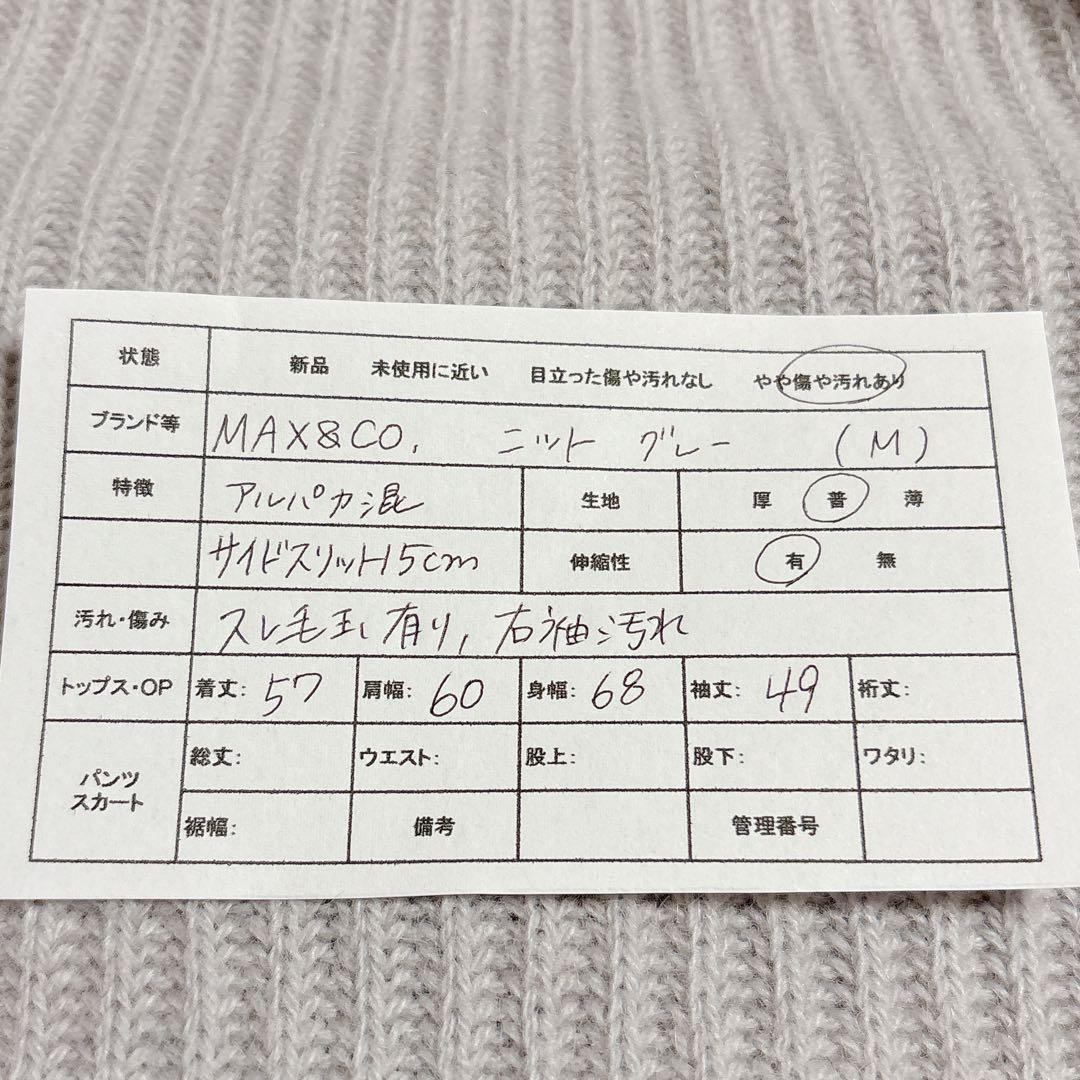 状態 新品 未使用に近い 目立った傷や汚れなし やや傷や汚れあり
ブランド等 MAX&CO. ニット グレー (M)
特徴 アルパカ混 生地 厚 普 薄
サイドスリット15cm 伸縮性 有 無
汚れ・傷み スレ毛玉有り,右袖汚れ
トップス・OP 着丈: 57 肩幅: 60 身幅: 68 袖丈: 49 裄丈:
パンツ スカート 総丈: ウエスト: 股上: 股下: ワタリ:
裾幅: 備考 管理番号